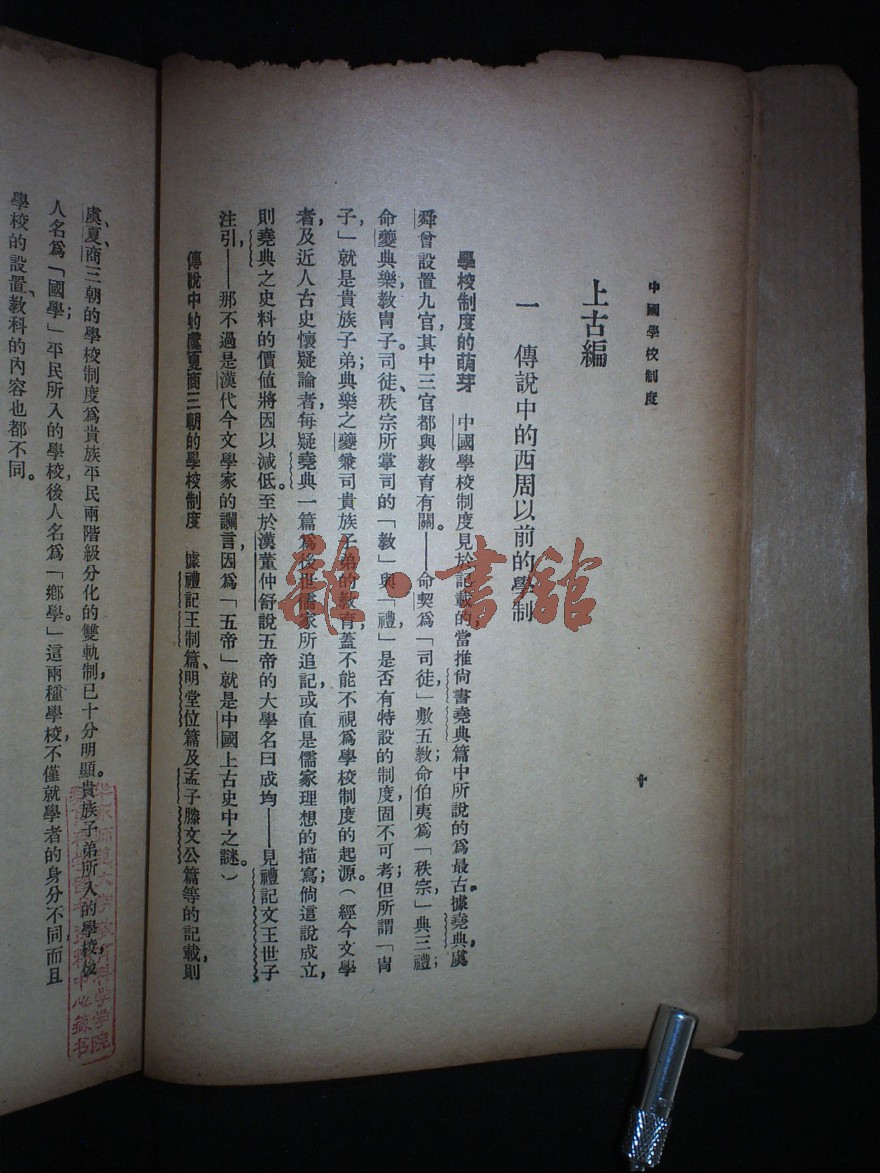 中國學校制度
十
上古編
一　傳說中的西周以前的學制
學校制度的萌芽　中國學校制度見於記載的，當推尙書堯典篇中所說的爲最古。據堯典，虞
舜曾設置九官，其中三官都與敎育有關。——命契爲「司徒」敷五敎；命伯夷爲「秩宗」，典三禮；
命夔典樂，敎冑子。司徒、秩宗所掌司的「敎」與「禮」，是否有特設的制度，固不可考；但所謂「冑
子」就是貴族子弟；典樂之夔兼司貴族子弟的敎育，蓋不能不視爲學校制度的起源。（經今文學
者及近人古史懷疑論者，每疑堯典一篇爲後世儒家所追記，或直是儒家理想的描寫；倘這說成立，
則堯典之史料的價値將因以減低。至於漢董仲舒說五帝的大學名曰成均——見禮記文王世子
注引——那不過是漢代今文學家的讕言，因爲「五帝」就是中國上古史中之謎。）
傳說中的虞夏商三朝的學校制度　據禮記王制篇、明堂位篇及孟子滕文公篇等的記載，則
虞、夏、商三朝的學校制度爲貴族平民兩階級分化的雙軌制，已十分明顯。貴族子弟所入的學校，後
人名爲「國學」；平民所入的學校，後人名爲「鄉學」。這兩種學校，不僅就學者的身分不同，而且
學校的設置、敎科的內容也都不同。
雜·書館
華東師範大學敎育科學學院
資料中心藏书